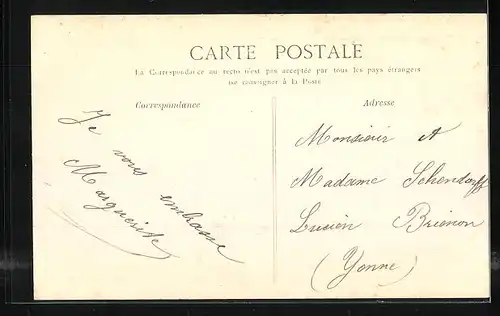 CARTE POSTALE
La Correspondance au recto n'est pas acceptée par tous les pays étrangers
se renseigner à la Poste
Correspondance
Je vous embrasse
Marguerite
Adresse
Monsieur
Madame Schendorff
Lucien Brienon
(Yonne)